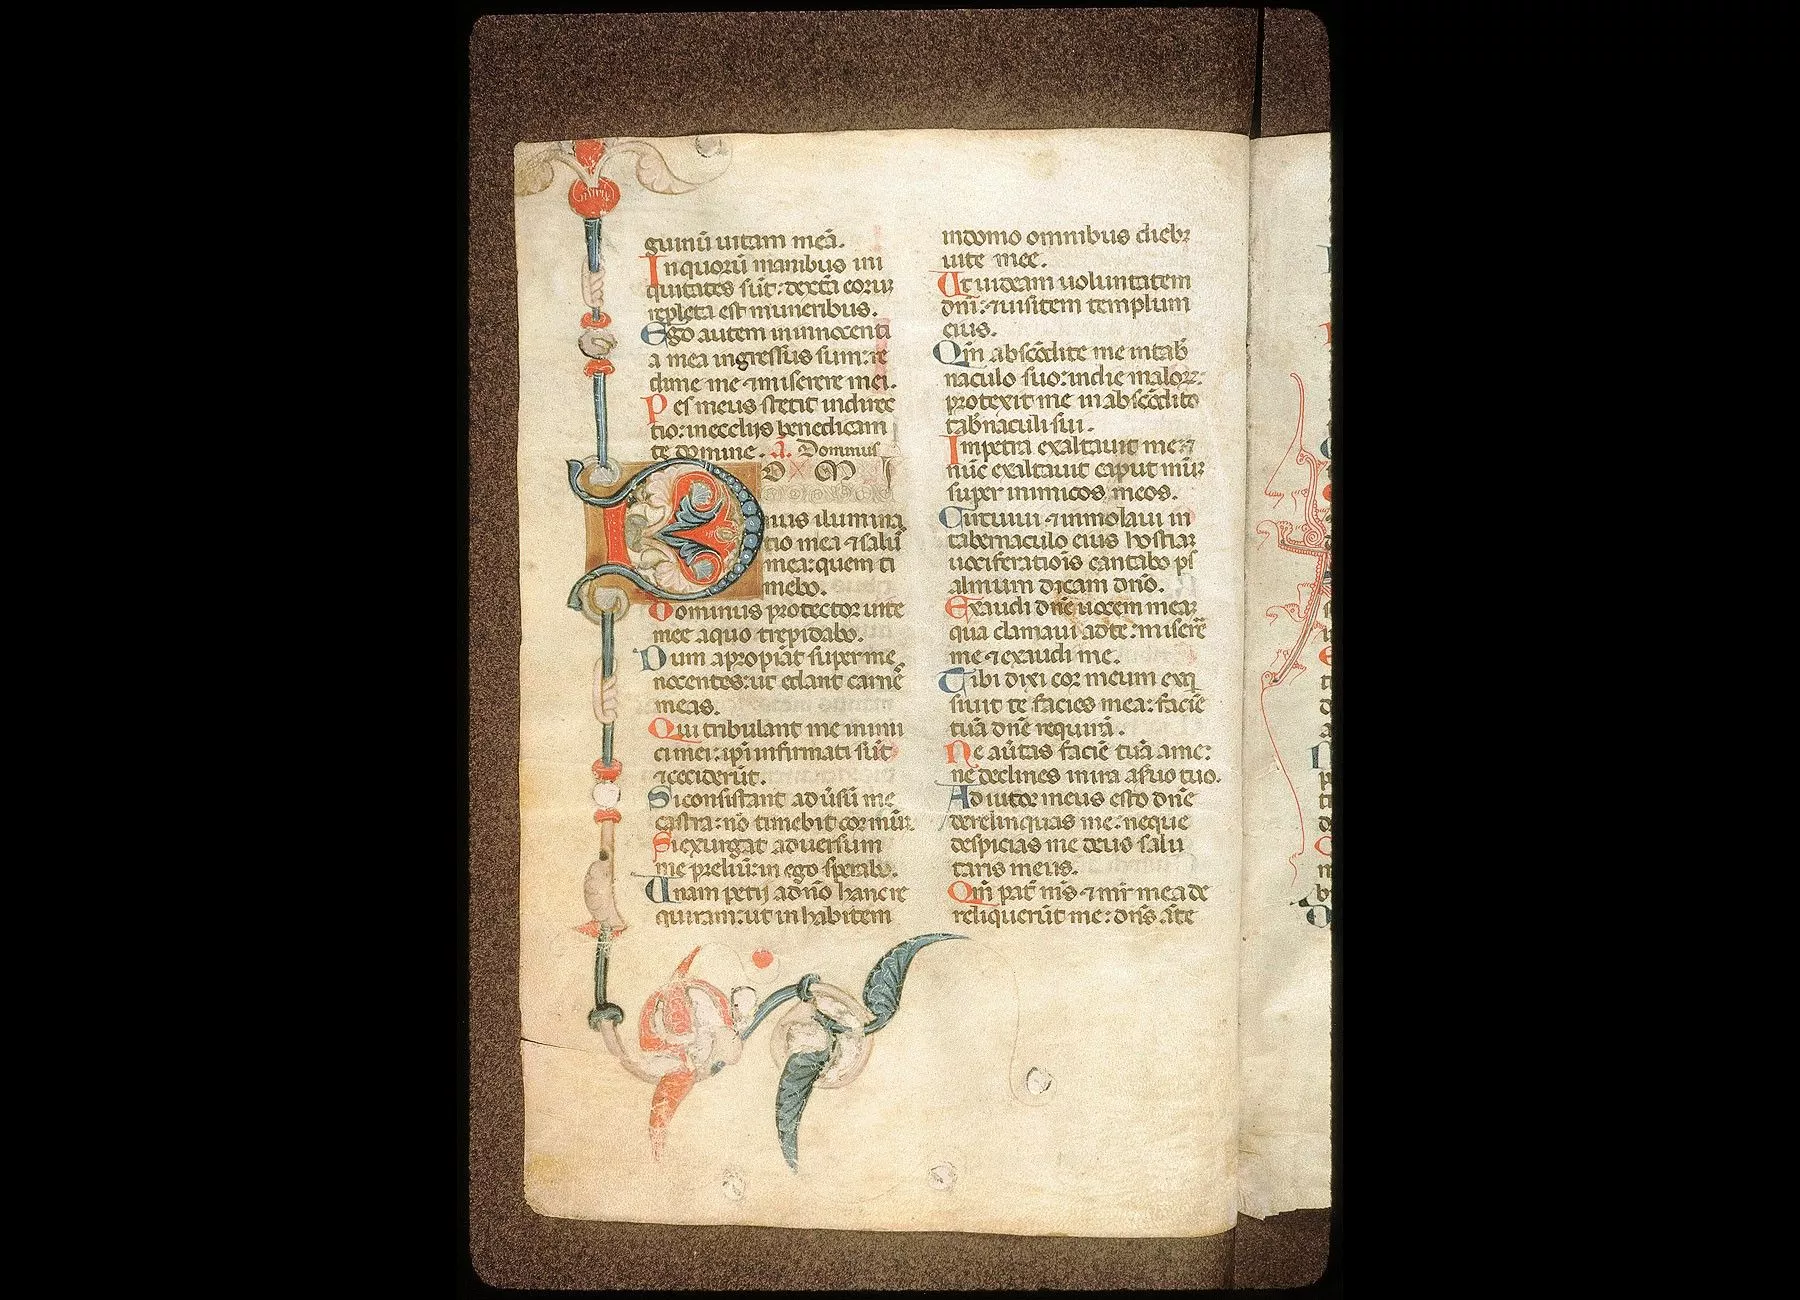 guinū uitam meā.
Inquorū manibus ini
quitates sūt: dextͣa eoruȝ
repleta est muneribus.
Ego autem in innocenti
a mea ingressus sum: re
dime me ⁊ miserere mei.
Pes meus stetit indirec
tio: ineccliis benedicam
te domine. a. Dominus
DOMI
nus ilumina
tio mea ⁊ salꝰ
mea: quem ti
mebo.
Dominus protector uite
mee aquo trepidabo.
Dum apropiāt super me
nocentes: ut edant carnē
meas.
Qui tribulant me inimi
ci mei: ipī infirmati sūt
⁊ ceciderūt.
Si consistant aduīsū me
castra: nō timebit cor meū.
Si exurgat aduersum
me preliū: in ego sperabo.
Unam petij adnō hanc re
quiram: ut in habitem
indomo omnibus dieb;
uite mee.
Ut uideam uoluntatem
dnī: ⁊ uisitem templum
eius.
Qm̄ abscōdite me intab̄
naculo suo: indie maloꝝ:
protexit me in abscōdito
tab̄naculi sui.
Inpetra exaltauit me: ⁊
nūc exaltauit caput meū:
super inimicos meos.
Circuiui ⁊ inmolaui in
tabernaculo eius hostiaȝ
uociferatiōis cantabo ⁊ ps
almum dicam dnō.
Exaudi dnē uocem meaȝ
qua clamaui adte: miserē
me ⁊ exaudi me.
Tibi dixi cor meum exq
siuit te facies mea: faciē
tuā dnē requirā.
Ne aūtas faciē tuā ame:
ne declines inira aseruo tuo.
Adiutor meus esto dnē
derelinquas me: neque
despicias me deus salu
taris meus.
Qm̄ pat̄ ms̄ ⁊ mr̄ mea de
reliquerūt me: dns̄ āte